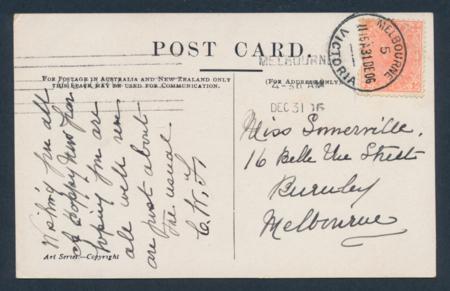 POST CARD.
FOR POSTAGE IN AUSTRALIA AND NEW ZEALAND ONLY
THIS SPACE MAY BE USED FOR COMMUNICATION.
(FOR ADDRESS ONLY)
MELBOURNE
4-30 AM
DEC 31 06
MELBOURNE
5
31 DE 06
VICTORIA
Wishing you all
a Happy New Year
hoping you are
all well
are just about
the usual
C.W.F.
Miss Somerville,
16 Belle Vue Street
Burnley
Melbourne
Art Series—Copyright